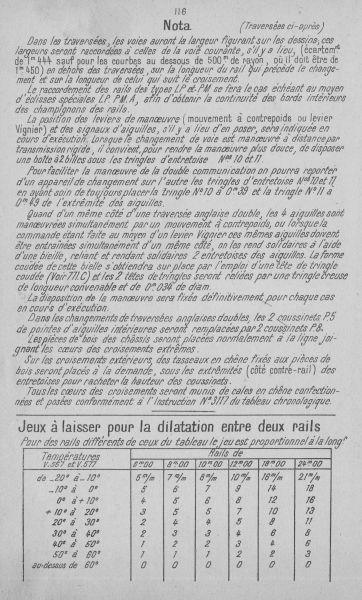 116
Nota (Traversées ci-après)
Dans les traversées, les voies auront la largeur figurant sur les dessins; ces
largeurs seront raccordées à celles de la voie courante, s'il y a lieu, (écartemt
de 1m444 sauf pour les courbes au dessous de 500m de rayon, où il doit être de
1m450) en dehors des traversées, sur la longueur du rail qui précède le change-
ment et sur la longueur de celui qui suit le croisement.
Le raccordement des rails des types LP et PM se fera le cas échéant au moyen
d'éclisses spéciales L.P. M.A, afin d'obtenir la continuité des bords intérieurs
des champignons des rails.
La position des leviers de manœuvre (mouvement à contrepoids ou levier
Vignier) et des signaux d'aiguilles, s'il y a lieu d'en poser, sera indiquée en
cours d'exécution. Lorsque le changement de voie est manœuvré à distance par
transmission rigide, il convient, pour rendre la manœuvre plus douce, de disposer
une boîte à 2 billes sous les tringles d'entretoise Nos 10 et 11.
Pour faciliter la manœuvre de la double communication on pourra reporter
d'un appareil de changement sur l'autre les tringles d'entretoise Nos 10 et 11
en ayant soin de toujours placer la tringle No 10 à 0m39 et la tringle No 11 à
0m49 de l'extrémité des aiguilles.
Quand d'un même côté d'une traversée anglaise double, les 4 aiguilles sont
manœuvrées simultanémt. par un mouvement à contrepoids, ou lorsque la
commande étant faite au moyen d'un levier Vignier ces mêmes aiguilles doivent
être entraînées simultanément d'un même côté, on les rend solidaires à l'aide
d'une bielle, reliant et rendant solidaires 2 entretoises des aiguilles. La forme
coudée de cette bielle s'obtiendra sur place par l'emploi d'une tête de tringle
coudée (Voir 77LC) et les 2 têtes de tringles seront reliées par une tringle creuse
de longueur convenable et de 0m034 de diam.
La disposition de la manœuvre sera fixée définitivement, pour chaque cas
en cours d'exécution.
Dans les changements de traversées anglaises doubles, les 2 coussinets P.5
de pointes d'aiguilles intérieures seront remplacées par 2 coussinets P.8.
Les pièces de bois des châssis seront placées normalement à la ligne joi-
gnant les cœurs des croisements extrêmes.
Sur les croisements extérieurs, des tasseaux en chêne fixés aux pièces de
bois seront placés à la demande, sous les extrémités (côté contre-rail) des
entretoises pour racheter la hauteur des coussinets.
Tous les cœurs des croisements seront munis de cales en chêne confection-
nées et posées conformément à l'Instruction No 3/17 du tableau chronologique.
Jeux à laisser pour la dilatation entre deux rails
Pour des rails différents de ceux du tableau le jeu est proportionnel à la longr
Températures Rails de
V. 567 et V. 577 6m00 8m00 10m00 12m00 18m00 24m00
de -20° à -10° 5m/m 7m/m 8m/m 10m/m 16m/m 21m/m
-10° à 0° 5 6 7 9 14 18
0° à +10° 4 5 6 8 12 16
+10° à 20° 3 5 5 7 10 13
20° à 30° 2 4 4 5 8 11
30° à 40° 2 3 3 4 6 8
40° à 50° 1 2 2 3 4 6
50° à 60° 1 1 1 2 2 3
au dessus de 60° 0 0 0 0 0 0